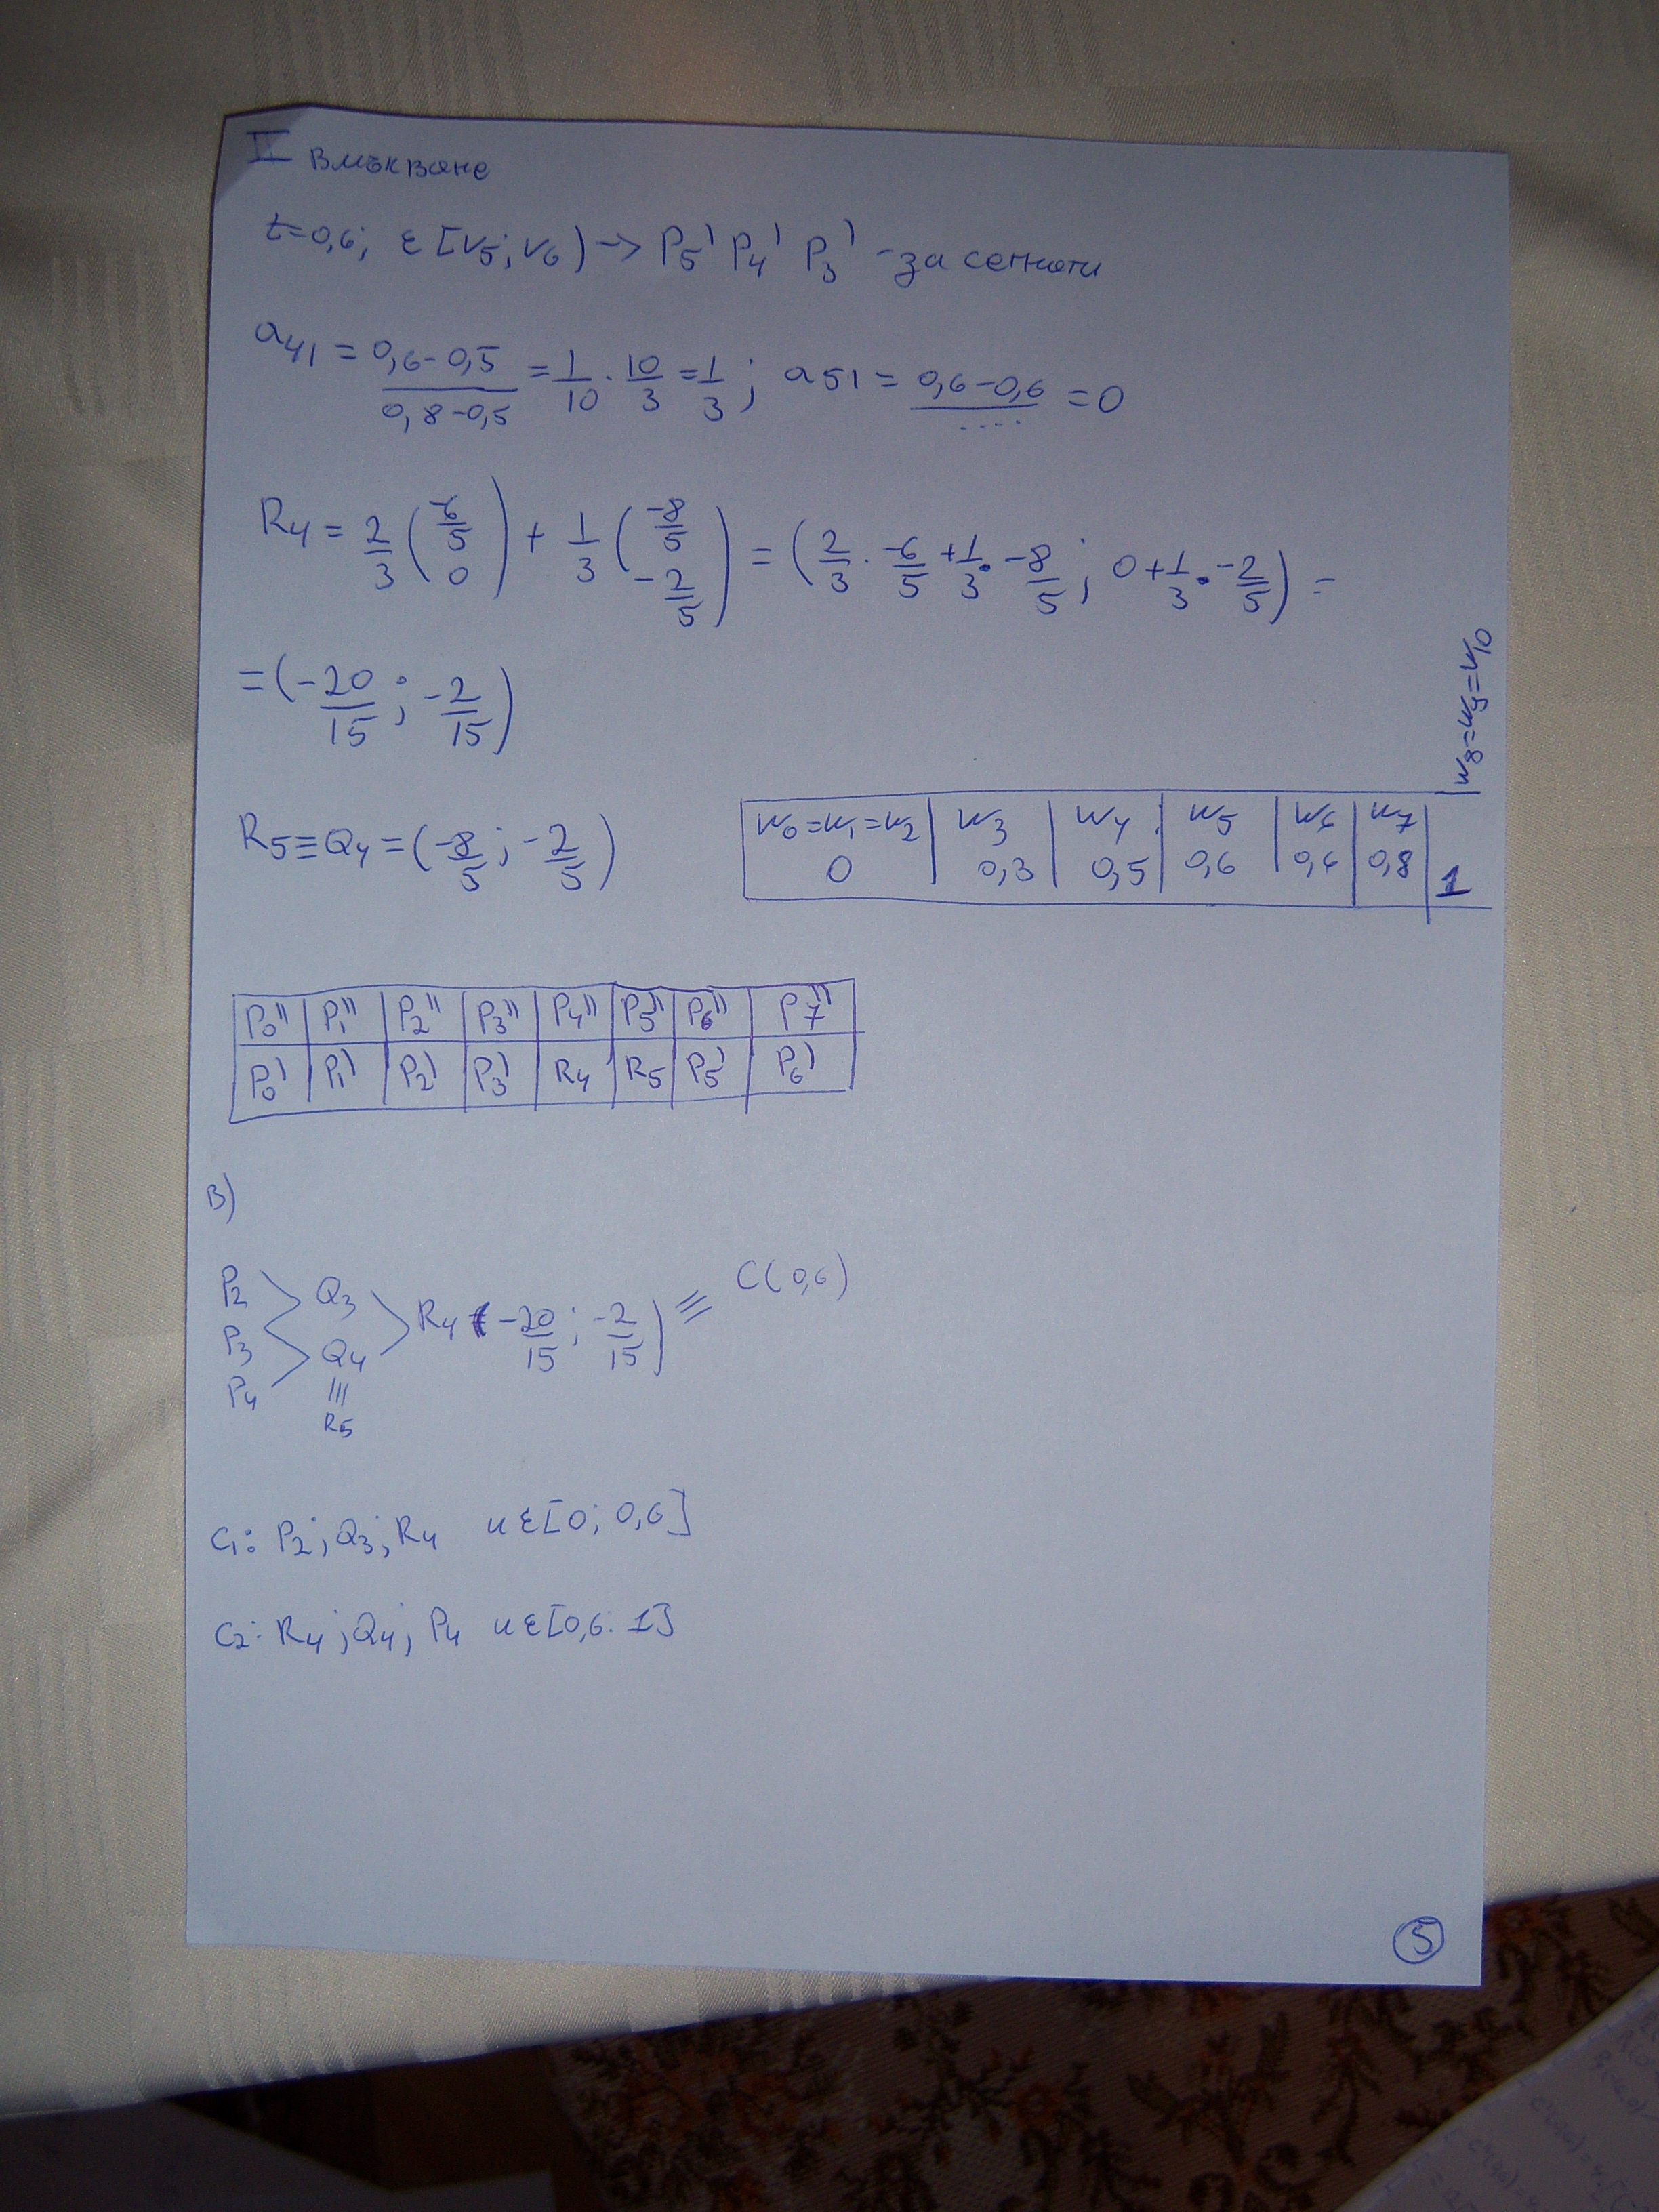 II Вмъкване
t=0,6; ε [v5; v6) → P5' P4' P3' - засегнати
a41 = (0,6-0,5)/(0,8-0,5) = 1/10 · 10/3 = 1/3 ; a51 = (0,6-0,6)/.... = 0
R4 = 2/3 (-6/5 0) + 1/3 (-8/5 -2/5) = (2/3 · -6/5 + 1/3 · -8/5 ; 0 + 1/3 · -2/5) =
= (-20/15 ; -2/15)
R5 ≡ Q4 = (-8/5 ; -2/5)
w0=w1=w2 | w3 | w4 | w5 | w6 | w7 | w8=w9=w10
0 | 0,3 | 0,5 | 0,6 | 0,6 | 0,8 | 1
P0'' | P1'' | P2'' | P3'' | P4'' | P5'' | P6'' | P7''
P0' | P1' | P2' | P3' | R4 | R5 | P5' | P6'
в)
P2 Q3 R4 (-20/15 ; -2/15) ≡ C(0,6)
P3 Q4
P4 ≡
R5
C1: P2; Q3; R4 u ε [0; 0,6]
C2: R4; Q4; P4 u ε [0,6: 1]
5